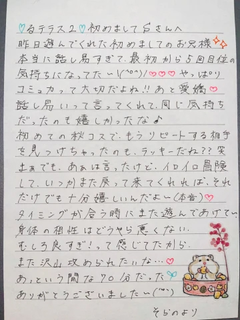 ♡るテラス2♡初めましてSさんへ
昨日遊んでくれた初めましてのお兄様✨
本当に話し易すぎて、最初から5回目位の
気持ちになってたー\(^o^)/♡♡♡やっぱり
コミュカって大切だよね!!あと愛嬌♡
話し易いって言ってくれて、同じ気持ち
だったのも嬉しかったな♪
初めての秋コスで、もうリピートする相手
を見つけちゃったのも、ラッキーだね??笑
まぁでも、あぁは言ったけど、イロイロ冒険
して、いつかまた戻って来てくれれば、それ
だけでも十分嬉しいんだよー(本音)♡
タイミングが合う時にまた遊んであげてー
身体の相性はどうやら悪くない。
むしろ良すぎ!って感じてたから、
また沢山攻められたいな…♡
あっという間な70分だった
ありがとうございましたー(^^)
そらのより